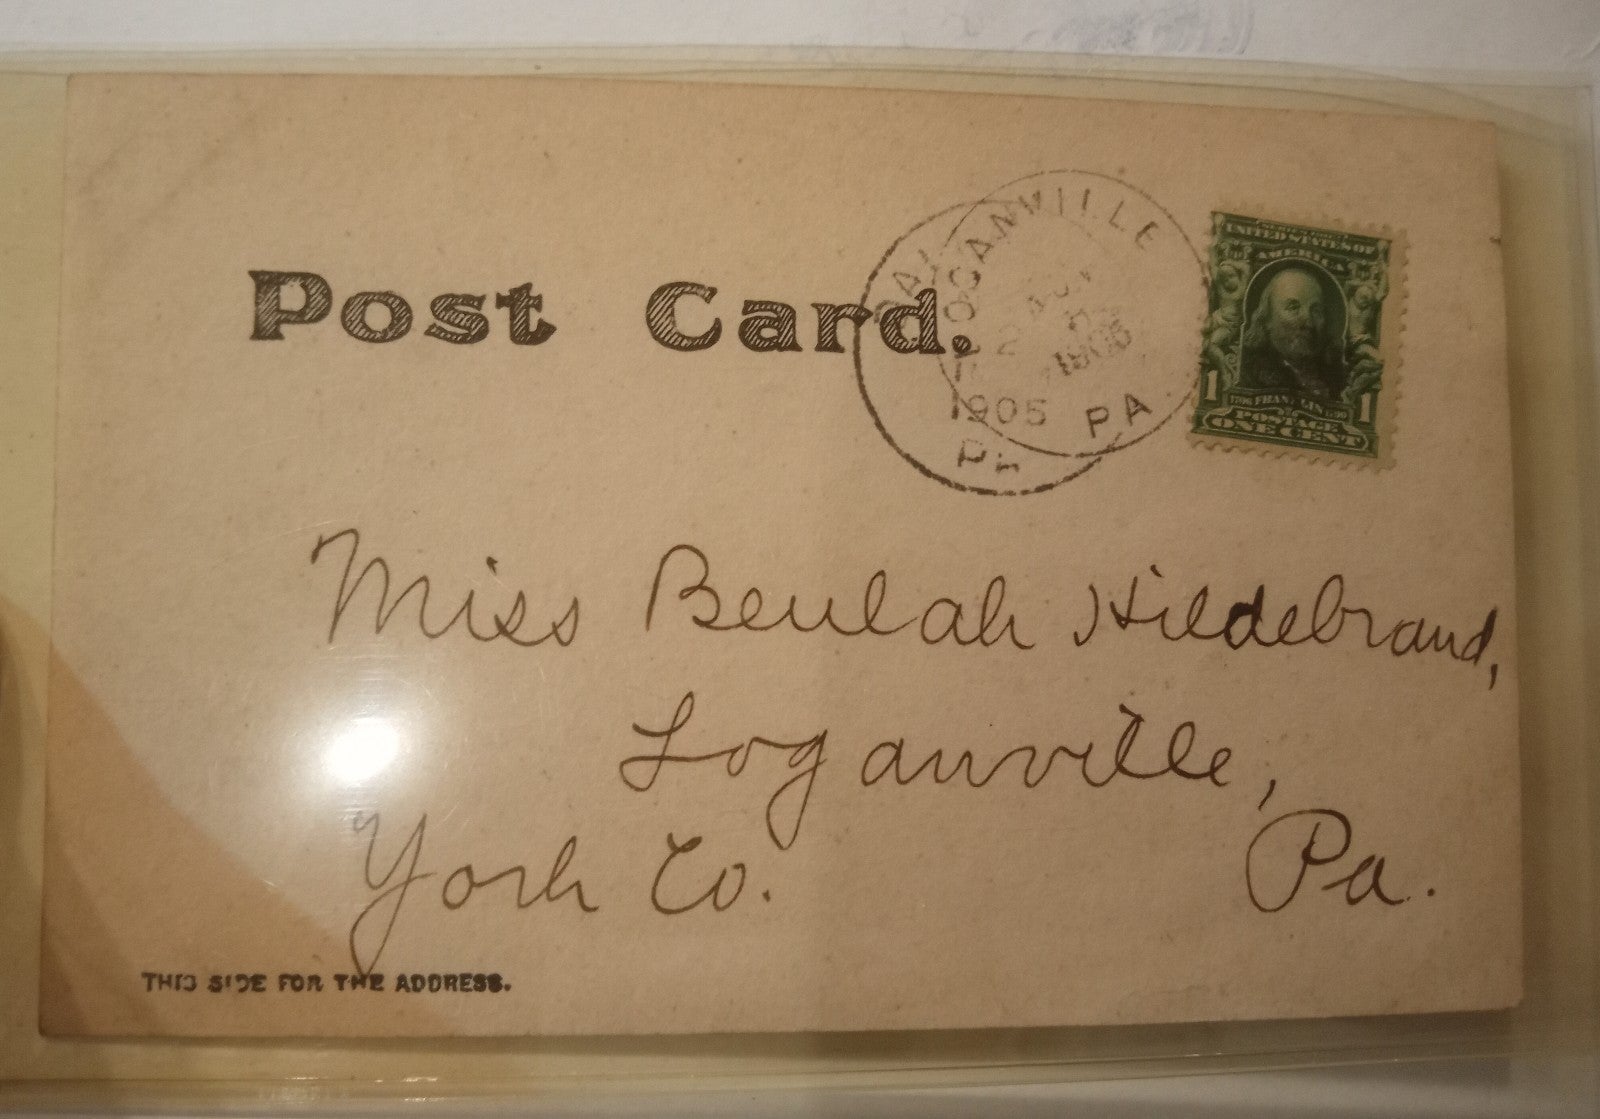 Post Card.
LOGANVILLE
1905
PA
1905
Pa
SERIES 1902
UNITED STATES OF
AMERICA
1 1706 FRANKLIN 1790 1
POSTAGE
ONE CENT
Miss Beulah Hildebrand,
Loganville,
York Co. Pa.
THIS SIDE FOR THE ADDRESS.